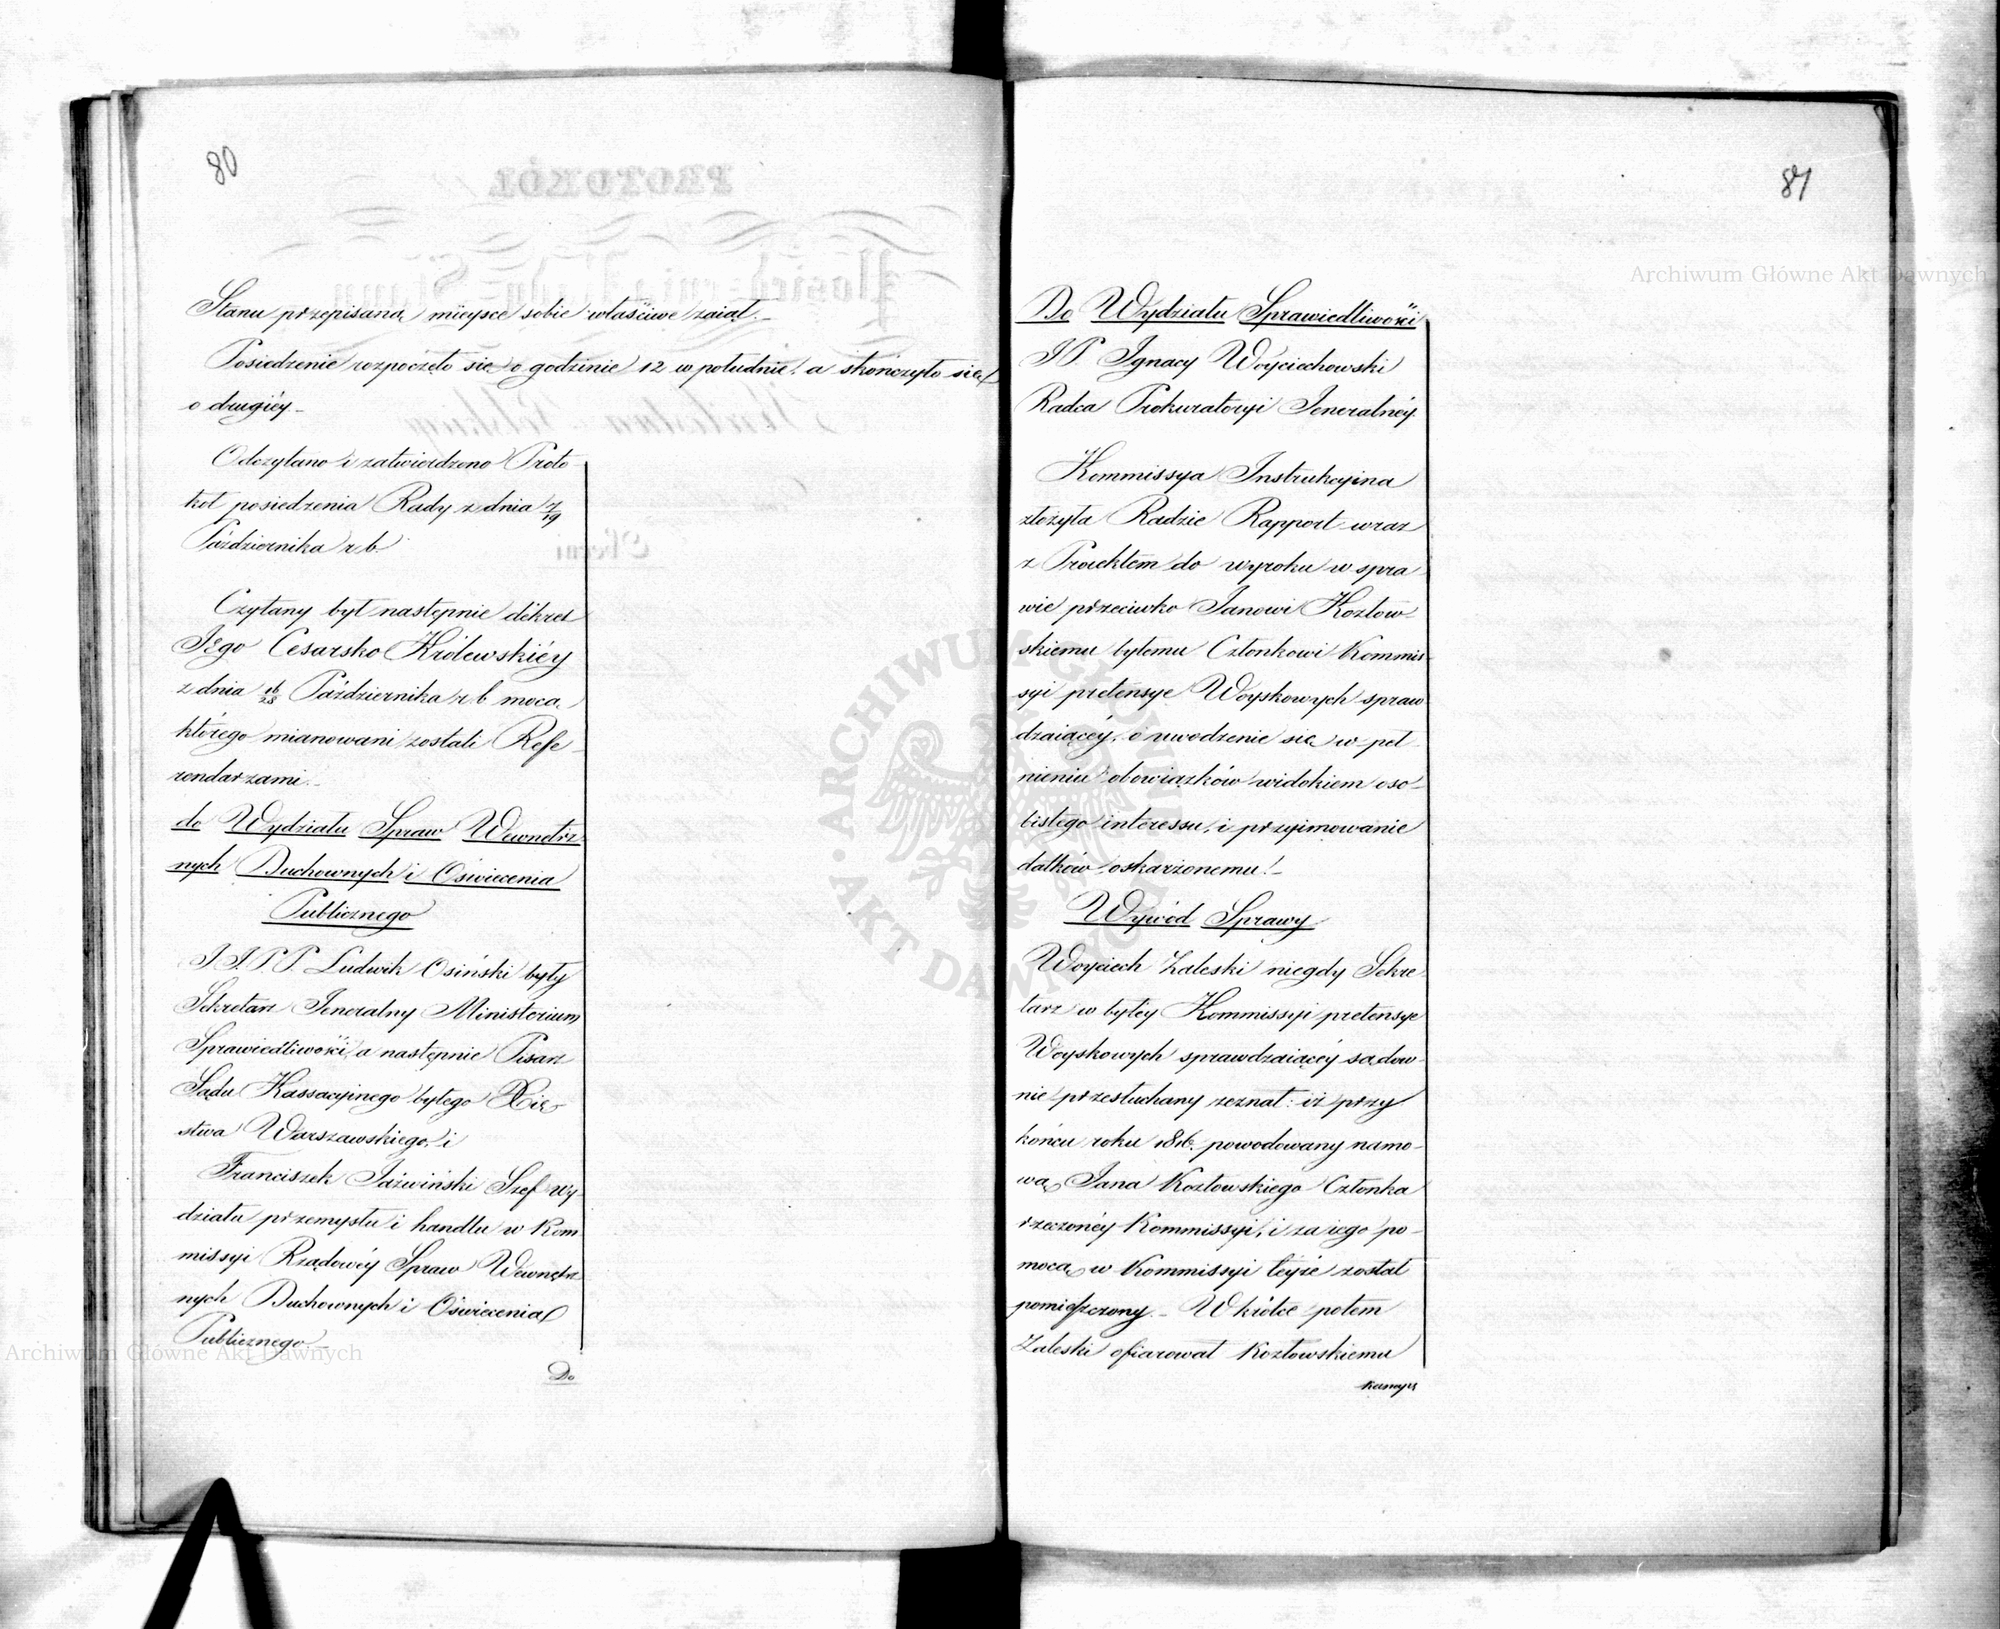 80
Stanu przepisaną mieysce sobie właściwe zaiął._
Posiedzenie rozpoczęło się o godzinie 12 w południe, a skończyło się
o drugiéy_
Odczytano i zatwierdzono Proto-
kół posiedzenia Rady z dnia 7/19
Października r. b.
Czytany był następnie dekret
Jego Cesarsko Królewskiéy
z dnia 16/28 Października r. b. mocą
którego mianowani zostali Refe-
rendarzami._
do Wydziału Spraw Wewnętrz-
nych Duchownych i Oświecenia
Publicznego
J J. P P. Ludwik Osiński były
Sekretarz Jeneralny Ministerium
Sprawiedliwości, a następnie Pisarz
Sądu Kassacyjnego byłego Xię-
stwa Warszawskiego, i
Franciszek Jaźwiński Szef wy-
działu przemysłu i handlu w Kom-
missyi Rządowéy Spraw Wewnętrz-
nych Duchownych i Oświecenia
Publicznego_
Do
81
Do Wydziału Sprawiedliwości
J P. Ignacy Woyciechowski
Radca Prokuratoryi Jeneralnéy.
Kommissya Instrukcyina
złożyła Radzie Rapport wraz
z Proiektem do wyroku w spra-
wie przeciwko Janowi Kozłow-
skiemu byłemu Członkowi Kommis-
syi pretensye Woyskowych spraw-
dzaiącéy, o uwodzenie się w peł-
nieniu obowiązków widokiem oso-
bistego interessu, i przyimowanie
datków oskarżonemu!_
Wywód Sprawy
Woyciech Zaleski niegdy Sekre-
tarz w byłey Kommissyi pretensye
Woyskowych sprawdzaiącéy sądow-
nie przesłuchany zeznał: iż przy
końcu roku 1816. powodowany namo-
wą Jana Kozłowskiego Członka
rzeczonéy Kommissyi, i za iego po-
mocą w Kommissyi teyże został
pomieszczony._ Wkrótce potem
Zaleski ofiarował Kozłowskiemu
Archiwum Główne Akt Dawnych
Archiwum Główne Akt Dawnych